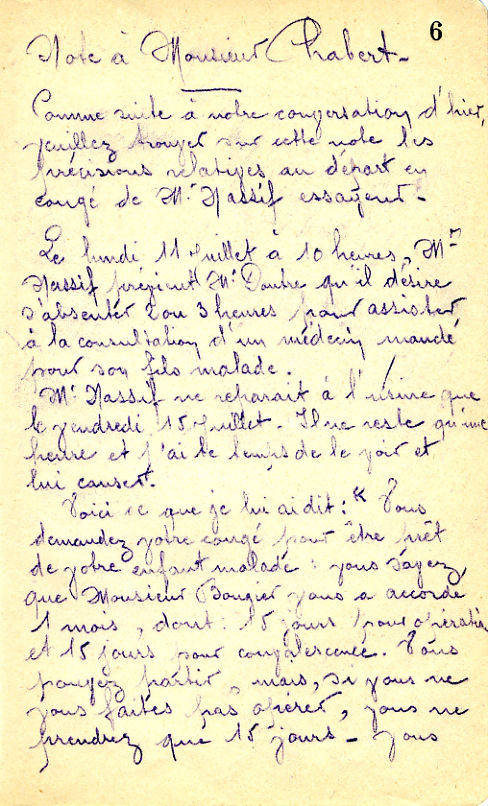 6
Note à Monsieur Chabert -
Comme suite à notre conversation d'hier,
veuillez trouver sur cette note les
précisions relatives au départ en
congé de Mr Nassif essayeur -
Le lundi 11 Juillet à 10 heures, Mr
Nassif prévient Mr Doutre qu'il désire
s'absenter 2 ou 3 heures pour assister
à la consultation d'un médecin mandé
pour son fils malade.
Mr Nassif ne reparait à l'usine que
le vendredi 15 Juillet - Il ne reste qu'une
heure et j'ai le temps de le voir et
lui causer.
Voici ce que je lui ai dit : " Vous
demandez votre congé pour être prêt
de votre enfant malade : vous savez
que Monsieur Bougier vous a accordé
1 mois, dont : 15 jours pour opération
et 15 jours pour convalescence. Vous
pouvez partir, mais, si vous ne
vous faites pas opérer, vous ne
prendrez que 15 jours - vous